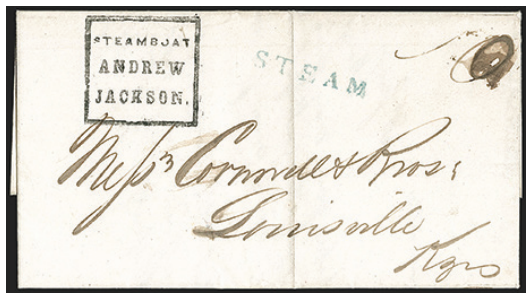 STEAMBOAT
ANDREW
JACKSON.
STEAM
Mess Cornwell & Bros:
Louisville
Kys